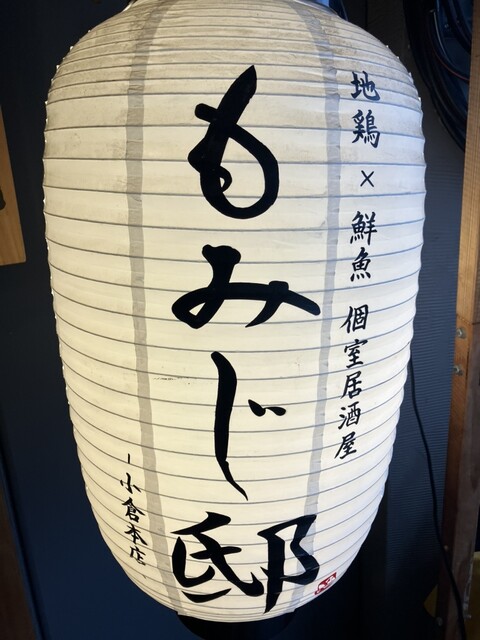 地鶏×鮮魚 個室居酒屋
もみじ邸
-小倉本店-